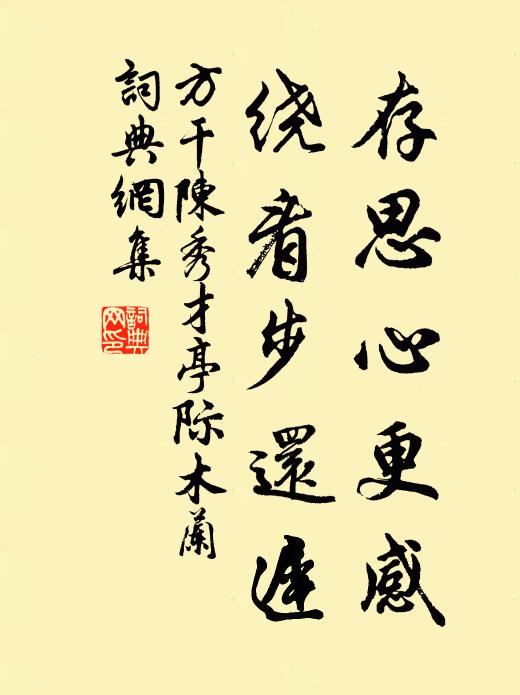 存思心更感
绕看步還遲
方干陳秀才亭际木蘭
詞典網集
詞典
网印